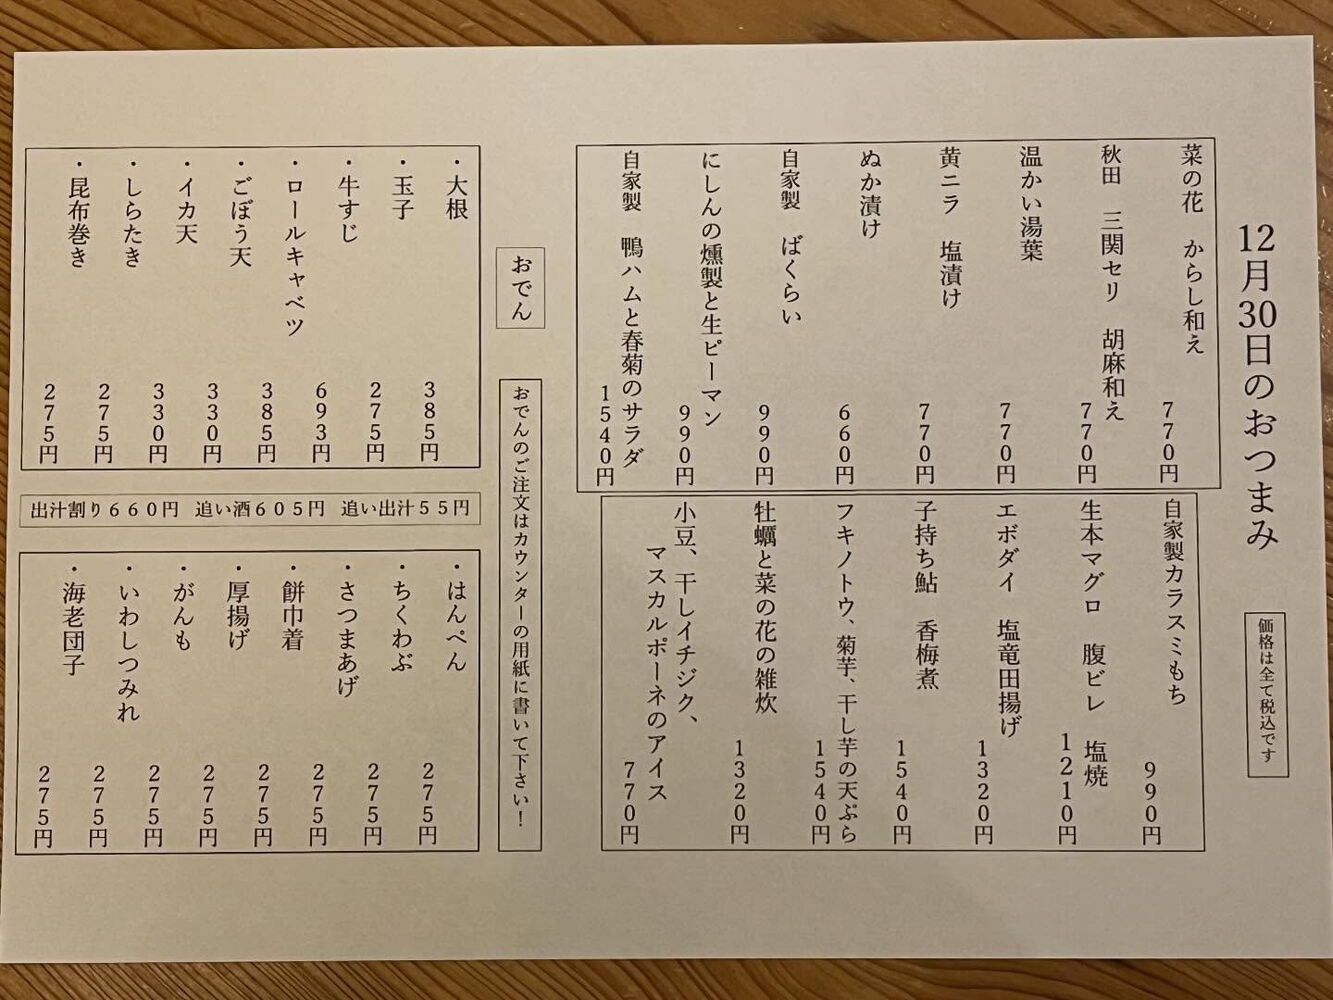 12月30日のおつまみ
価格は全て税込です
菜の花　からし和え
770円
秋田　三関セリ　胡麻和え
770円
温かい湯葉
770円
黄ニラ　塩漬け
770円
ぬか漬け
660円
自家製　ばくらい
990円
にしんの燻製と生ピーマン
990円
自家製　鴨ハムと春菊のサラダ
1540円
自家製カラスミもち
990円
生本マグロ　腹ビレ　塩焼
1210円
エボダイ　塩竜田揚げ
1320円
子持ち鮎　香梅煮
1540円
フキノトウ、菊芋、干し芋の天ぷら
1540円
牡蠣と菜の花の雑炊
1320円
小豆、干しイチジク、
マスカルポーネのアイス
770円
おでん
おでんのご注文はカウンターの用紙に書いて下さい！
・大根
385円
・玉子
275円
・牛すじ
693円
・ロールキャベツ
385円
・ごぼう天
330円
・イカ天
330円
・しらたき
275円
・昆布巻き
275円
出汁割り660円　追い酒605円　追い出汁55円
・はんぺん
275円
・ちくわぶ
275円
・さつまあげ
275円
・餅巾着
275円
・厚揚げ
275円
・がんも
275円
・いわしつみれ
275円
・海老団子
275円